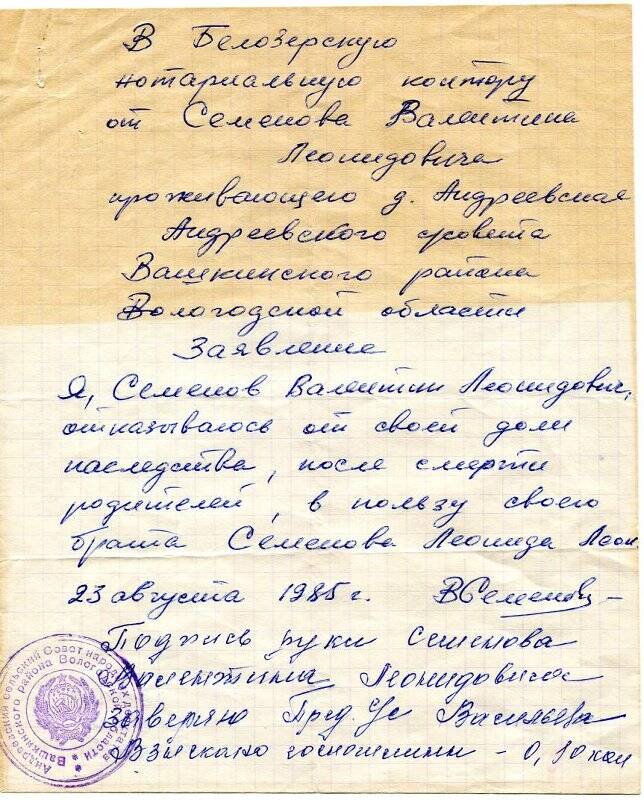 В Белозерскую
нотариальную контору
от Семенова Валентина
Леонидовича
проживающего д. Андреевская
Андреевского с/совета
Вашкинского района
Вологодской области
Заявление
Я, Семенов Валентин Леонидович,
отказываюсь от своей доли
наследства, после смерти
родителей, в пользу своего
брата Семенова Леонида Леон.
23 августа 1985 г. ВСеменов
Подпись руки Семенова
Валентина Леонидовича
заверяю Пред. с/с Васильева
Взыскано госпошлины - 0,30 коп
Андреевский сельский Совет народных депутатов
Вашкинского района Вологодской области